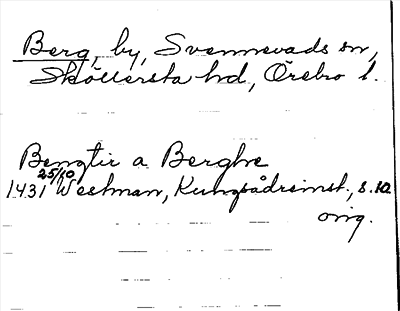 Berg, by, Svennevads sn,
Sköllersta hd, Örebro l.
Bengtir a Berghe
1431 25/10 Westman, Kungsådreinst., s. 102
orig.